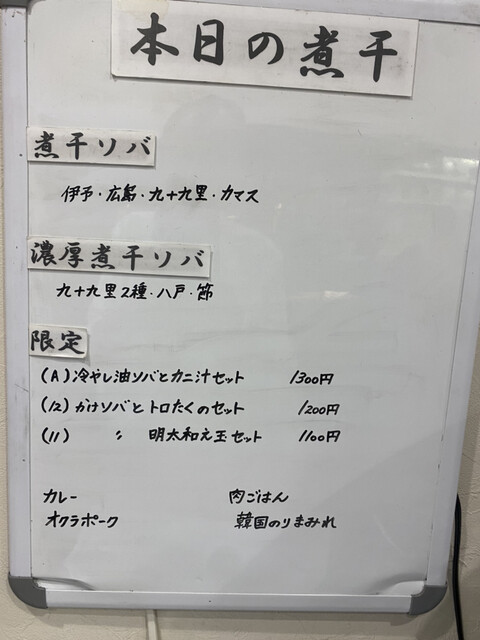 本日の煮干
煮干ソバ
伊予・広島・九十九里・カマス
濃厚煮干ソバ
九十九里2種・八戸・節
限定
(A)冷やし油ソバとカニ汁セット 1300円
(12)かけソバとトロたくのセット 1200円
(11) 〃 明太和え玉セット 1100円
カレー 肉ごはん
オクラポーク 韓国のりまみれ